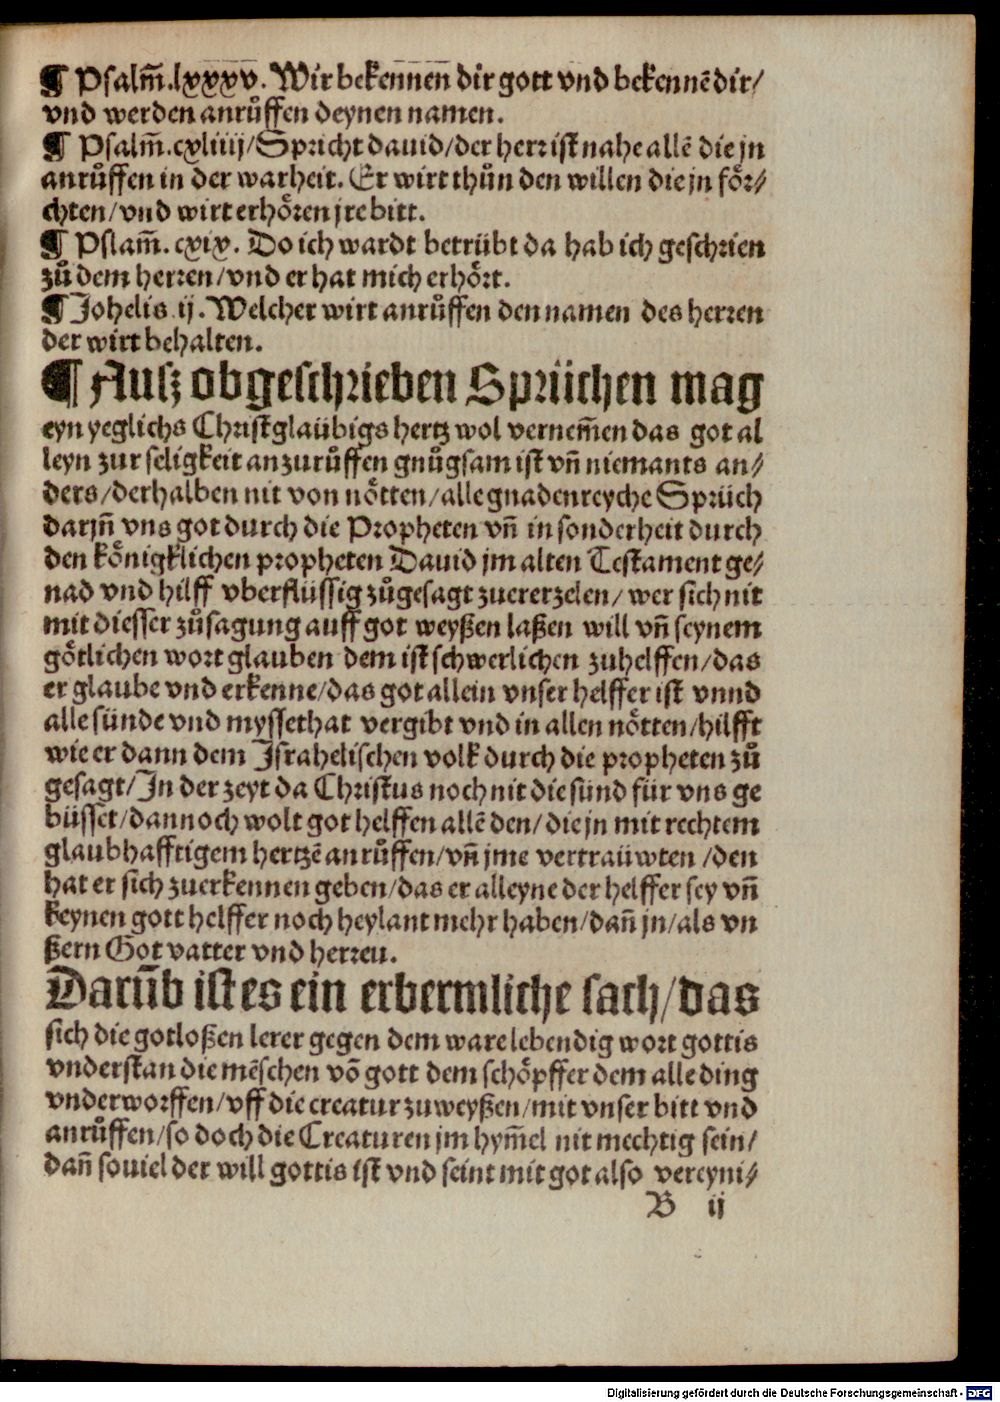 ¶ Psalm̄.lxxxv. Wir bekennen dir gott vnd bekennē dir/
vnd werden anrůffen deynen namen.
¶ Psalm̄.cxliiij/Spricht dauid/der herr ist nahe allē die jn
anrůffen in der warheit. Er wirt thůn den willen die jn för⸗
chten/vnd wirt erhören jre bitt.
¶ Pslam̄. cxix. Do ich wardt betrübt da hab ich geschrien
zů dem herren/vnd er hat mich erhört.
¶ Johelis ij. Welcher wirt anrůffen den namen des herren
der wirt behalten.
¶ Ausz obgeschrieben Sprüchen mag
eyn yeglichs Christglaübigs hertz wol vernem̄en das got al
leyn zur seligkeit anzurůffen gnůgsam ist vn̄ niemants an⸗
ders/derhalben nit von nötten/alle gnadenreyche Sprüch
darjn̄ vns got durch die Propheten vn̄ in sonderheit durch
den königklichen propheten Dauid jm alten Testament ge⸗
nad vnd hilff vberflüssig zůgesagt zuererzelen/ wer sich nit
mit diesser zůsagung auff got weyßen laßen will vn̄ seynem
götlichen wort glauben dem ist schwerlichen zuhelffen/das
er glaube vnd erkenne/das got allein vnser helffer ist vnnd
alle sünde vnd myssethat vergibt vnd in allen nötten/hilfft
wie er dann dem Israhelischen volk durch die propheten zů
gesagt/In der zeyt da Christus noch nit die sünd für vns ge
büsset/dannoch wolt got helffen allē den/die jn mit rechtem
glaubhafftigem hertzē anrůffen/vn̄ jme vertraüwten /den
hat er sich zuerkennen geben/das er alleyne der helffer sey vn̄
keynen gott helffer noch heylant mehr haben/dan̄ jn/als vn
ßern Got vatter vnd herren.
Darūb ist es ein erbermliche sach/das
sich die gotloßen lerer gegen dem ware lebendig wort gottis
vnderstan die mēschen vō gott dem schöpffer dem alle ding
vnderworffen/vff die creatur zuweyßen/mit vnser bitt vnd
anrůffen/so doch die Creaturen jm hym̄el nit mechtig sein/
dan̄ souiel der will gottis ist vnd seint mit got also vereyni⸗
B ij
Digitalisierung gefördert durch die Deutsche Forschungsgemeinschaft - DFG